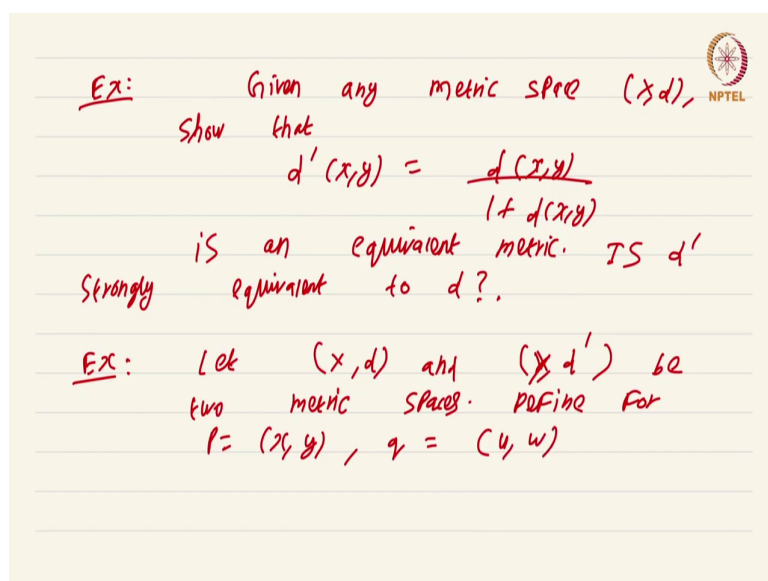 Ex: Given any metric space (X, d),
NPTEL
show that
d'(x,y) = d(x,y)
1+ d(x,y)
is an equivalent metric. Is d'
strongly equivalent to d?.
Ex: Let (X, d) and (X, d') be
two metric spaces. Define for
P = (x, y), q = (u, w)